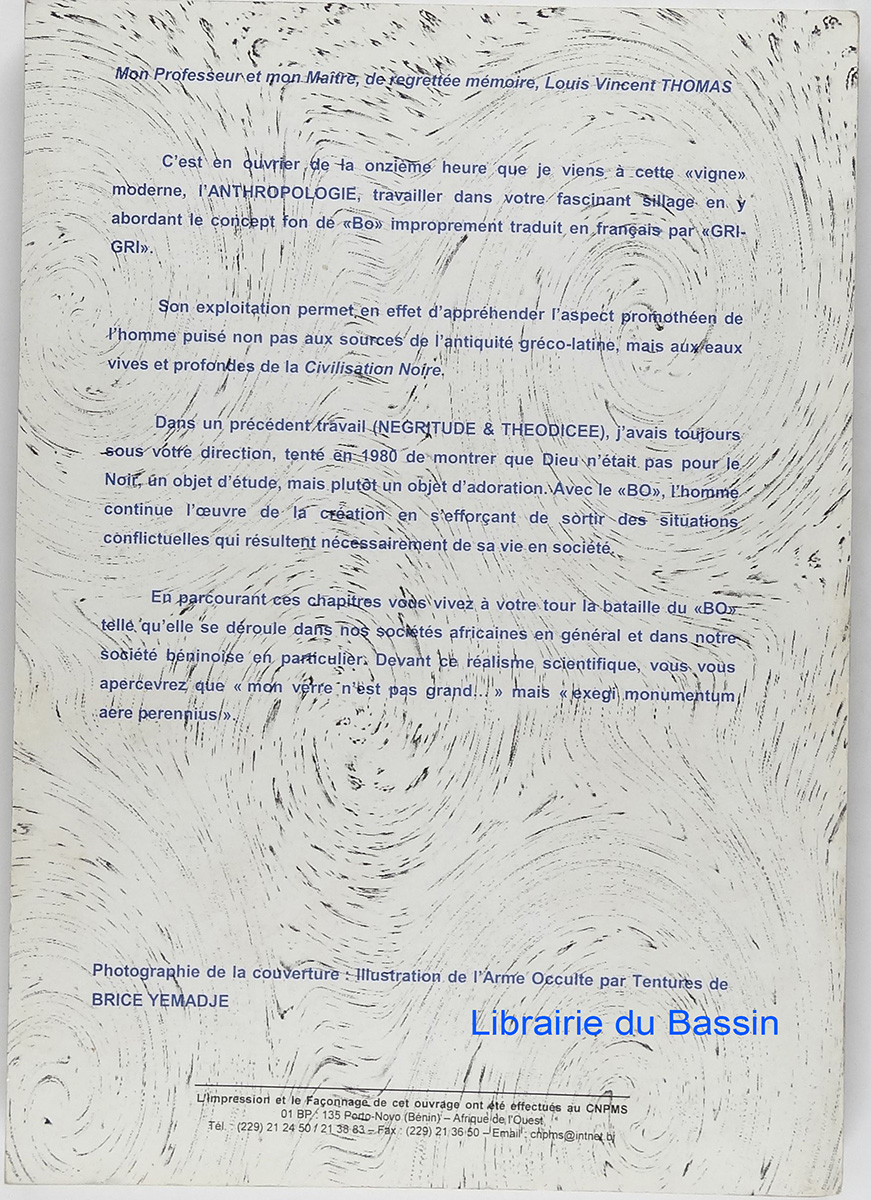 Mon Professeur et mon Maître, de regrettée mémoire, Louis Vincent THOMAS
C'est en ouvrier de la onzième heure que je viens à cette «vigne»
moderne, l'ANTHROPOLOGIE, travailler dans votre fascinant sillage en y
abordant le concept fon de «Bo» improprement traduit en français par «GRI-
GRI».
Son exploitation permet en effet d'appréhender l'aspect promothéen de
l'homme puisé non pas aux sources de l'antiquité gréco-latine, mais aux eaux
vives et profondes de la Civilisation Noire.
Dans un précédent travail (NEGRITUDE & THEODICEE), j'avais toujours
sous votre direction, tenté en 1980 de montrer que Dieu n'était pas pour le
Noir, un objet d'étude, mais plutôt un objet d'adoration. Avec le «BO», l'homme
continue l'œuvre de la création en s'efforçant de sortir des situations
conflictuelles qui résultent nécessairement de sa vie en société.
En parcourant ces chapitres vous vivez à votre tour la bataille du «BO»
telle qu'elle se déroule dans nos sociétés africaines en général et dans notre
société béninoise en particulier. Devant ce réalisme scientifique, vous vous
apercevrez que « mon verre n'est pas grand... » mais « exegi monumentum
aere perennius ».
Photographie de la couverture : Illustration de l'Arme Occulte par Tentures de
BRICE YEMADJE
Librairie du Bassin
L'Impression et le Façonnage de cet ouvrage ont été effectués au CNPMS
01 BP : 135 Porto-Novo (Bénin) – Afrique de l'Ouest
Tél. : (229) 21 24 50 / 21 38 83 – Fax : (229) 21 36 50 – Email : cnpms@intnet.bj